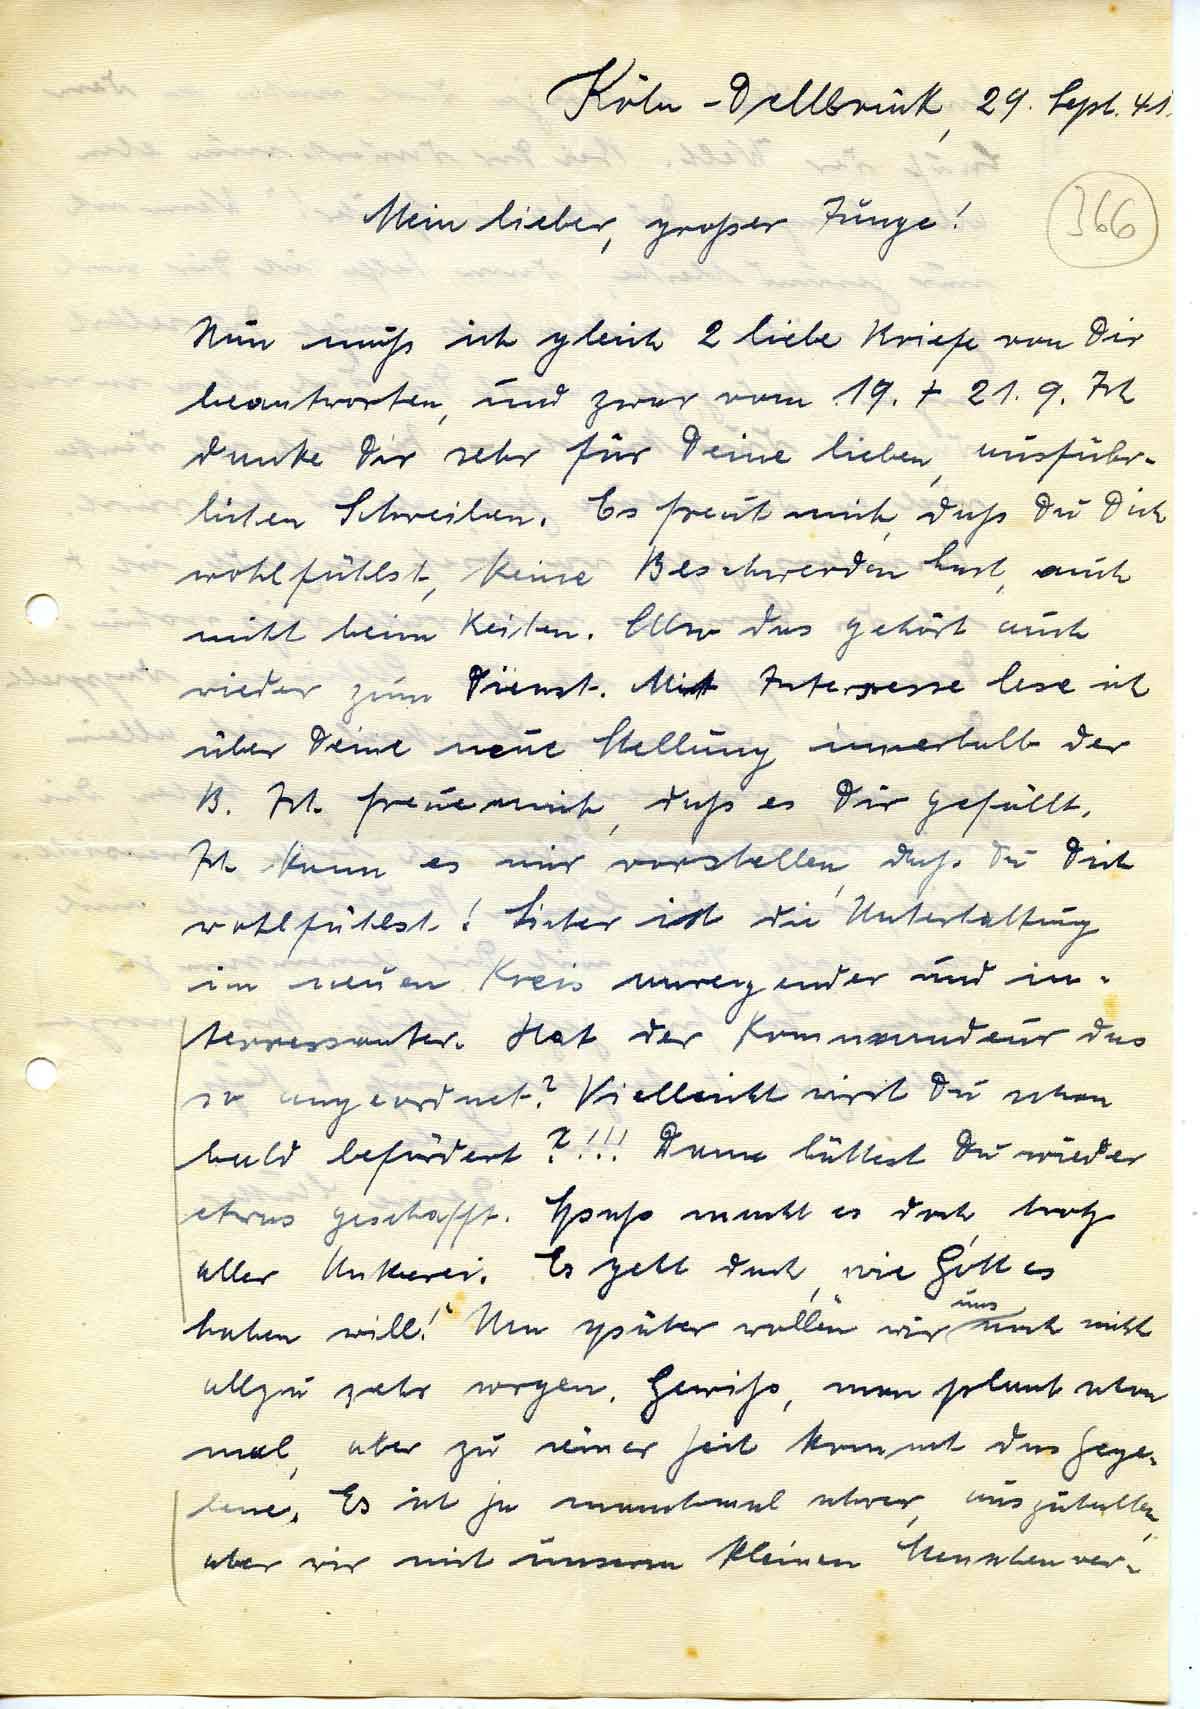 Köln-Dellbrück, 29. Sept. 41.
366
Mein lieber, großer Junge!
Nun muß ich gleich 2 liebe Briefe von Dir
beantworten, und zwar vom 19. + 21. 9. Ich
danke Dir sehr für Deine lieben, ausführ-
lichen Schreiben. Es freut mich, daß Du Dich
wohlfühlst, keine Beschwerden hast, auch
nicht beim Reiten. Also das gehört auch
wieder zum Dienst. Mit Interesse lese ich
über Deine neue Stellung innerhalb der
B. Ich freue mich, daß es Dir gefällt.
Ich kann es mir vorstellen, daß Du Dich
wohlfühlst! Sicher ist die Unterhaltung
im neuen Kreis anregender und in-
terressanter. Hat der Kommandeur das
so angeordnet? Vielleicht wirst Du schon
bald befördert?!!! Dann hättest Du wieder
etwas geschafft. Spaß macht es doch trotz
aller Unkerei. Es geht doch, wie Gott es
haben will!" Um später wollen wir uns noch nicht
allzu sehr sorgen. Gewiß, man plant schon
mal, aber zu seiner Zeit kommt das Gege-
bene. Es ist ja manchmal schwer, auszuhalten,
aber wir mit unserm kleinen Menschenver-